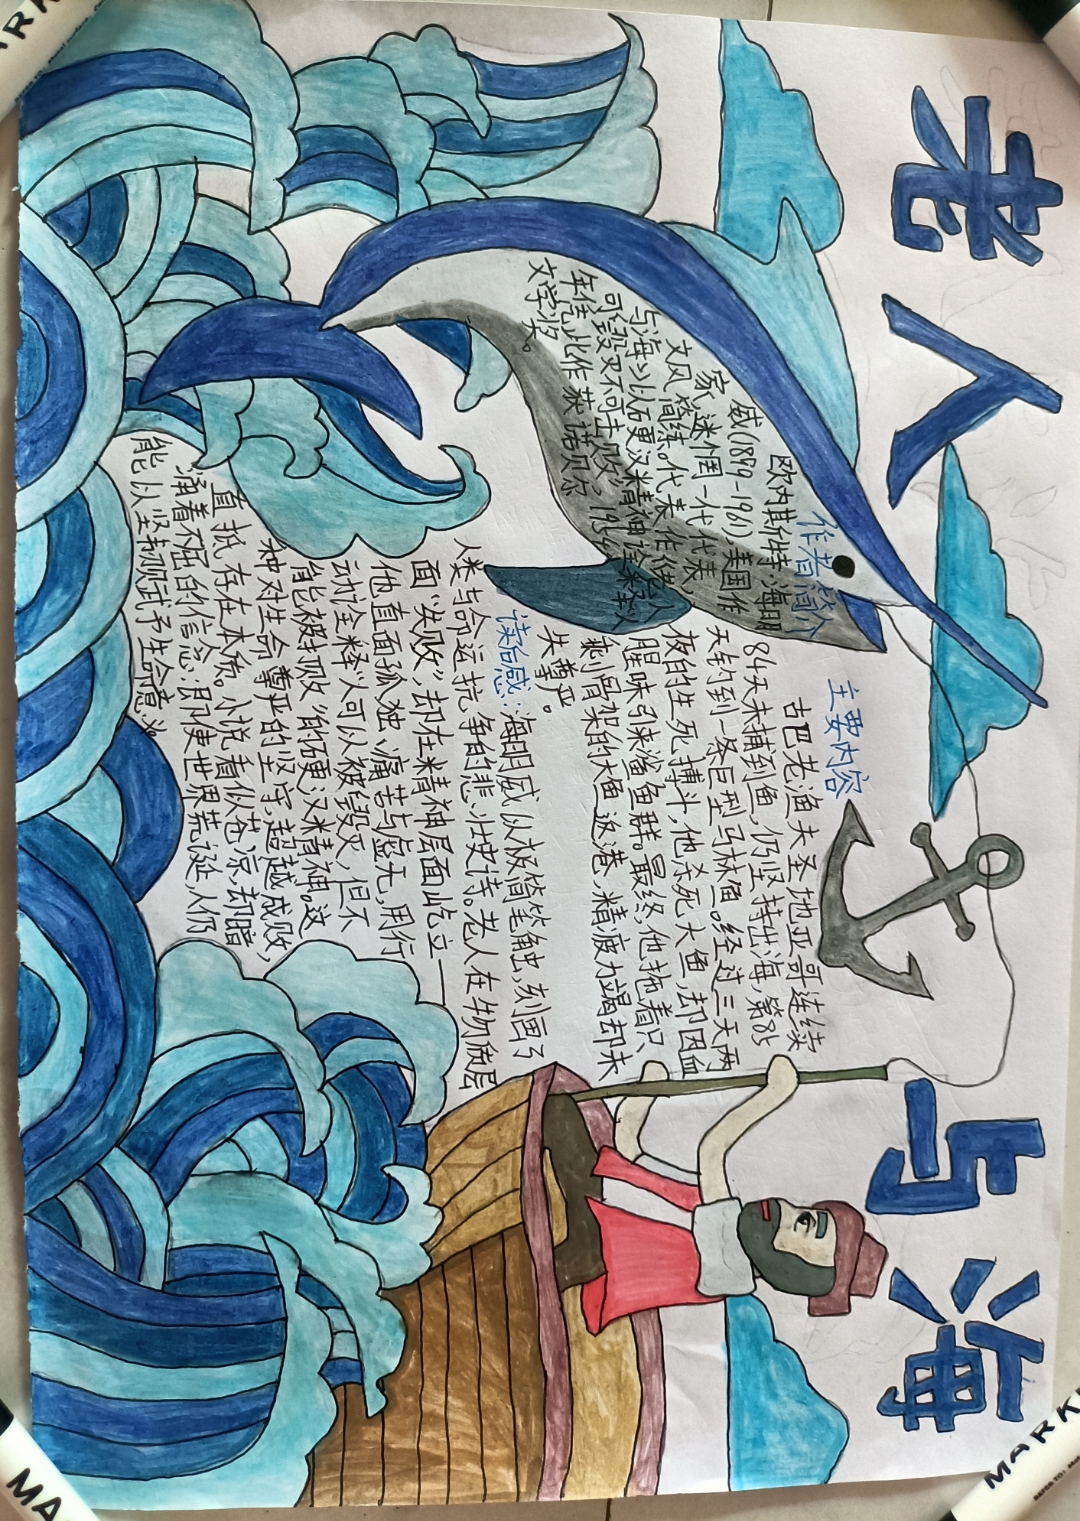 老人与海
作者简介
欧内斯特·海明
威(1899-1961)美国作
家,迷惘一代代表,
文风简练。代表作《老人
与海》以硬汉精神诠释"人
可毁灭不可击败",1954
年凭此作获诺贝尔
文学奖。
主要内容
古巴老渔夫圣地亚哥连续
84天未捕到鱼,仍坚持出海,第85
天钓到一条巨型马林鱼。经过三天两
夜的生死搏斗,他杀死大鱼,却因血
腥味引来鲨鱼群。最终,他拖着只
剩骨架的大鱼返港,精疲力竭却未
失尊严。
读后感:海明威以极简笔触,刻画了
人类与命运抗争的悲壮史诗。老人在物质层
面"失败",却在精神层面屹立——
他直面孤独、痛苦与虚无,用行
动诠释"人可以被毁灭,但不
能被打败"的硬汉精神。这
种对生命尊严的坚守,超越成败,
直抵存在本质。小说看似苍凉,却暗
涌着不屈的信念:即使世界荒诞,人仍
能以坚韧赋予生命意义。
MARK
MARK
MA